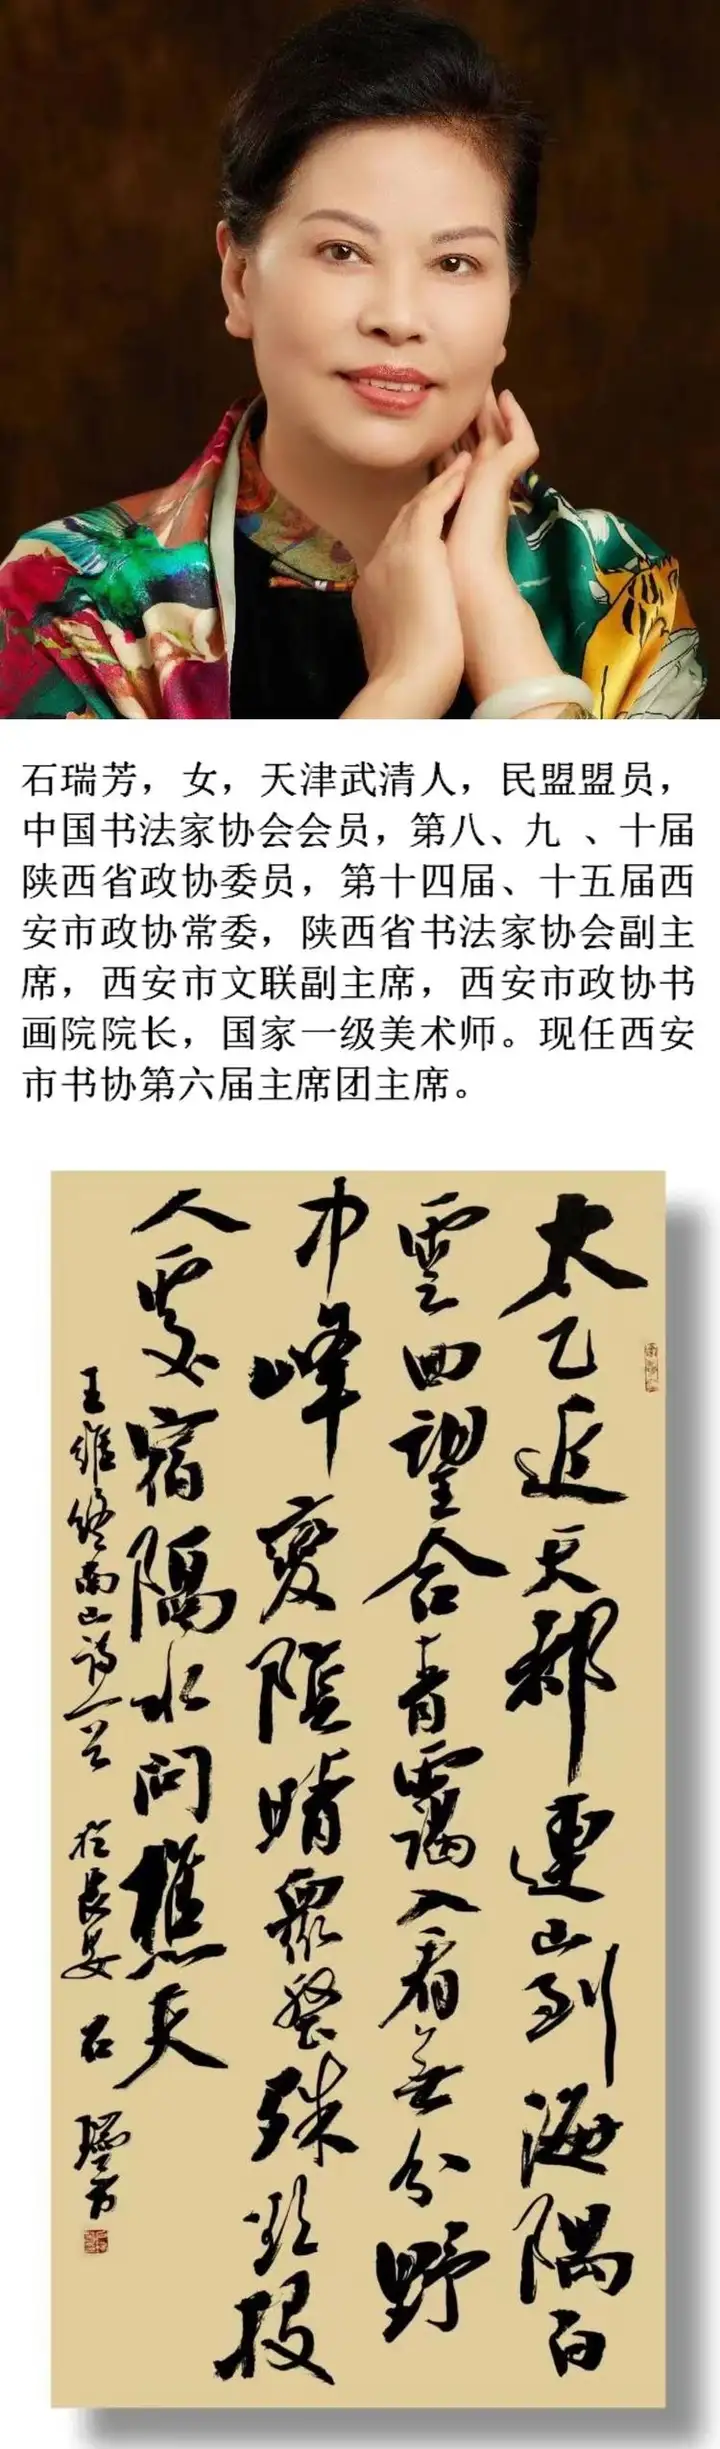 石瑞芳，女，天津武清人，民盟盟员，
中国书法家协会会员，第八、九 、十届
陕西省政协委员，第十四届、十五届西
安市政协常委，陕西省书法家协会副主
席，西安市文联副主席，西安市政协书
画院院长，国家一级美术师。现任西安
市书协第六届主席团主席。
太乙近天都連山到海隅白
雲回望合青靄入看無分野
中峰變陰晴衆壑殊欲投
人處宿隔水問樵夫
王維終南山詩一首 於長安 石瑞芳